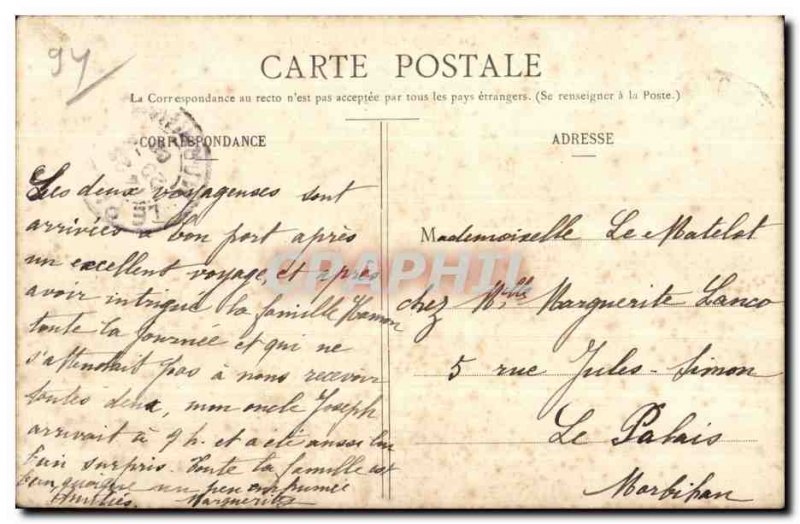 94
CARTE POSTALE
La Correspondance au recto n'est pas acceptée par tous les pays étrangers. (Se renseigner à la Poste.)
CORRESPONDANCE
Les deux voyageuses sont
arrivées à bon port après
un excellent voyage, et après
avoir intrigué la famille Hamon
toute la journée et qui ne
s'attendait pas à nous recevoir
toutes deux, mon oncle Joseph
arrivait à 9 h. et a été aussi
surpris. Toute la famille est
bien quoique un peu enrhumée
Amitiés. Marguerite
ADRESSE
Mademoiselle Le Matelot
chez Mlle Marguerite Lanco
5 rue Jules-Simon
Le Palais
Morbihan
CPARPHIL